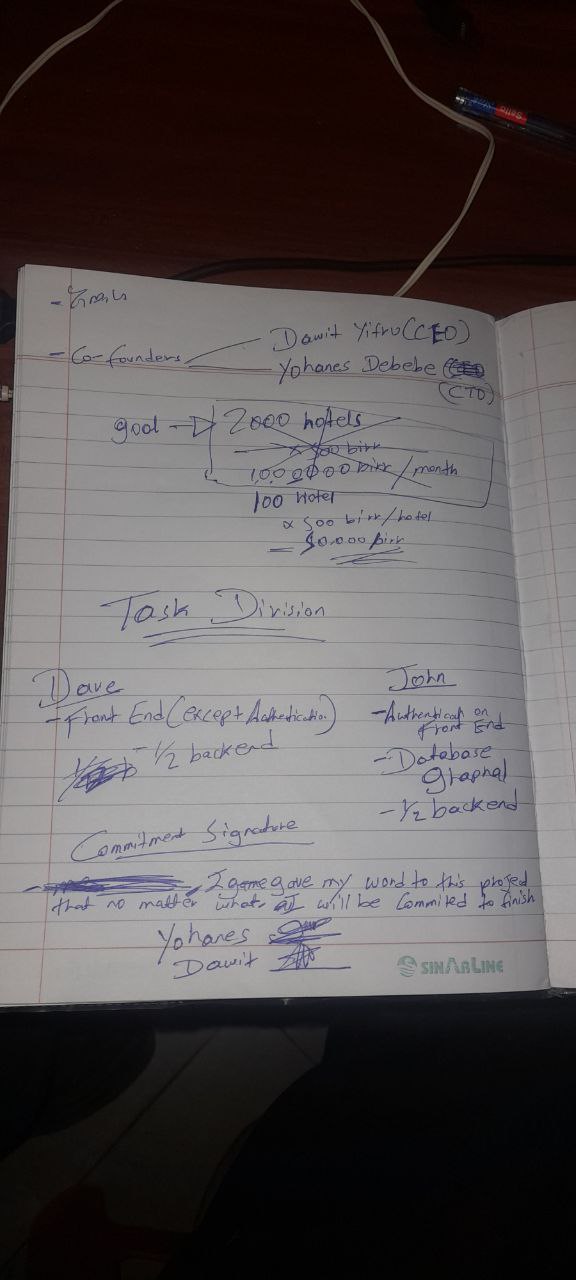 - Co-founders
Dawit Yifru (CEO)
Yohanes Debebe
(CTO)
goal → 2000 hotels
x 500 birr
1,000,000 birr/month
100 Hotel
x 500 birr/hotel
= 50,000 birr
Task Division
Dave
- Front End (except Authentication)
- 1/2 backend
John
- Authentication on
Front End
- Database
Graphql
- 1/2 backend
Commitment Signature
I gave my word to this project
that no matter what I will be Commited to finish
Yohanes
Dawit
SINARLINE
Cello